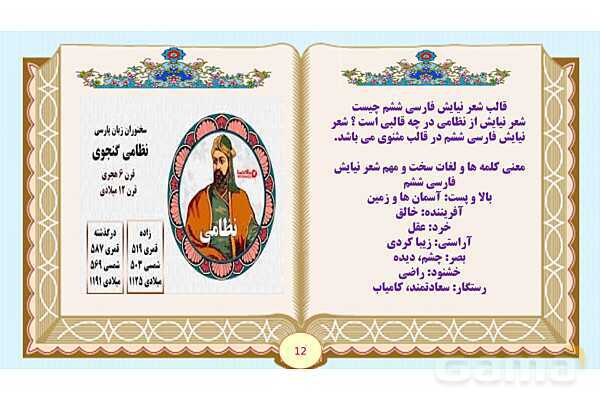 قالب شعر نیایش فارسی ششم چیست
شعر نیایش از نظامی در چه قالبی است ؟ شعر
نیایش فارسی ششم در قالب مثنوی می باشد.
معنی کلمه ها و لغات سخت و مهم شعر نیایش
فارسی ششم
بالا و پست: آسمان ها و زمین
آفریننده: خالق
خرد: عقل
آراستی: زیبا کردی
بصر: چشم، دیده
خشنود: راضی
رستگار: سعادتمند، کامیاب
سخنوران زبان پارسی
نظامی گنجوی
قرن ۶ هجری
قرن ۱۲ میلادی
زاده
قمری ۵۱۹
شمسی ۵۰۳
میلادی ۱۱۲۵
درگذشته
قمری ۵۸۷
شمسی ۵۶۹
میلادی ۱۱۹۱
نظامی
12
Gama